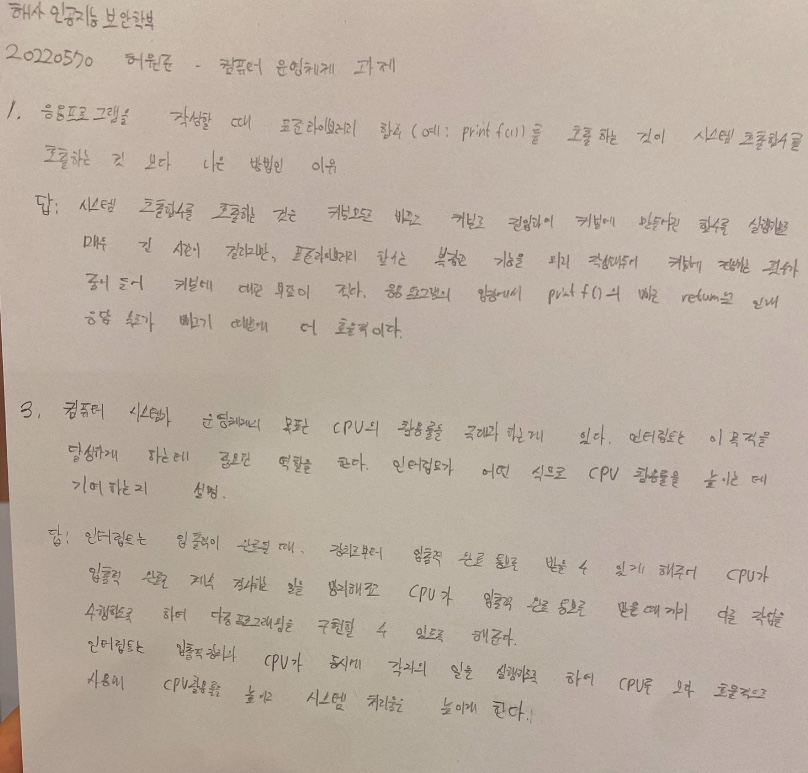 해사 인공지능 보안학부
20220570 허원준 - 컴퓨터 운영체제 과제
1. 응용프로그램을 작성할 때 표준라이브러리 함수(예: printf())를 호출하는 것이 시스템 호출함수를
호출하는 것 보다 나은 방법인 이유
답: 시스템 호출함수를 호출하는 것은 커널모드로 바꾸고 커널로 진입하여 커널에 만들어진 함수를 실행하므로
매우 긴 시간이 걸리지만, 표준라이브러리 함수는 복잡한 기능을 미리 작성해두어 커널에 진입하는 횟수가
줄어 들어 커널에 대한 부담이 적다. 응용프로그램의 입장에서 printf()의 빠른 return으로 인해
응답 속도가 빠르기 때문에 더 효율적이다.
3. 컴퓨터 시스템과 운영체제의 목표는 CPU의 활용률을 극대화 하는데 있다. 인터럽트는 이 목적을
달성하게 하는데 중요한 역할을 한다. 인터럽트가 어떤 식으로 CPU 활용률을 높이는 데
기여하는지 설명.
답: 인터럽트는 입출력이 완료될 때, 장치로부터 입출력 완료 통보를 받을 수 있게 해주어 CPU가
입출력 완료를 계속 검사하는 일을 방지해주고 CPU가 입출력 완료 통보를 받을 때까지 다른 작업을
수행하도록 하여 다중프로그래밍을 구현할 수 있도록 해준다.
인터럽트는 입출력장치와 CPU가 동시에 각자의 일을 실행하도록 하여 CPU를 보다 효율적으로
사용해 CPU활용률을 높이고 시스템 처리율을 높이게 한다.